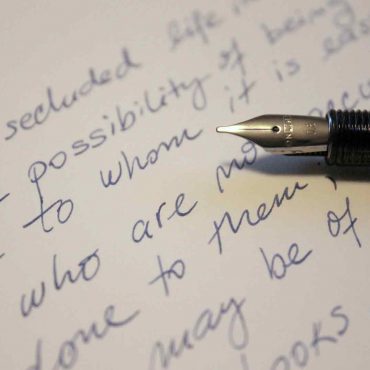 secluded life in
possibility of being
to whom it is easy
who are not
done to them;
may be of
books